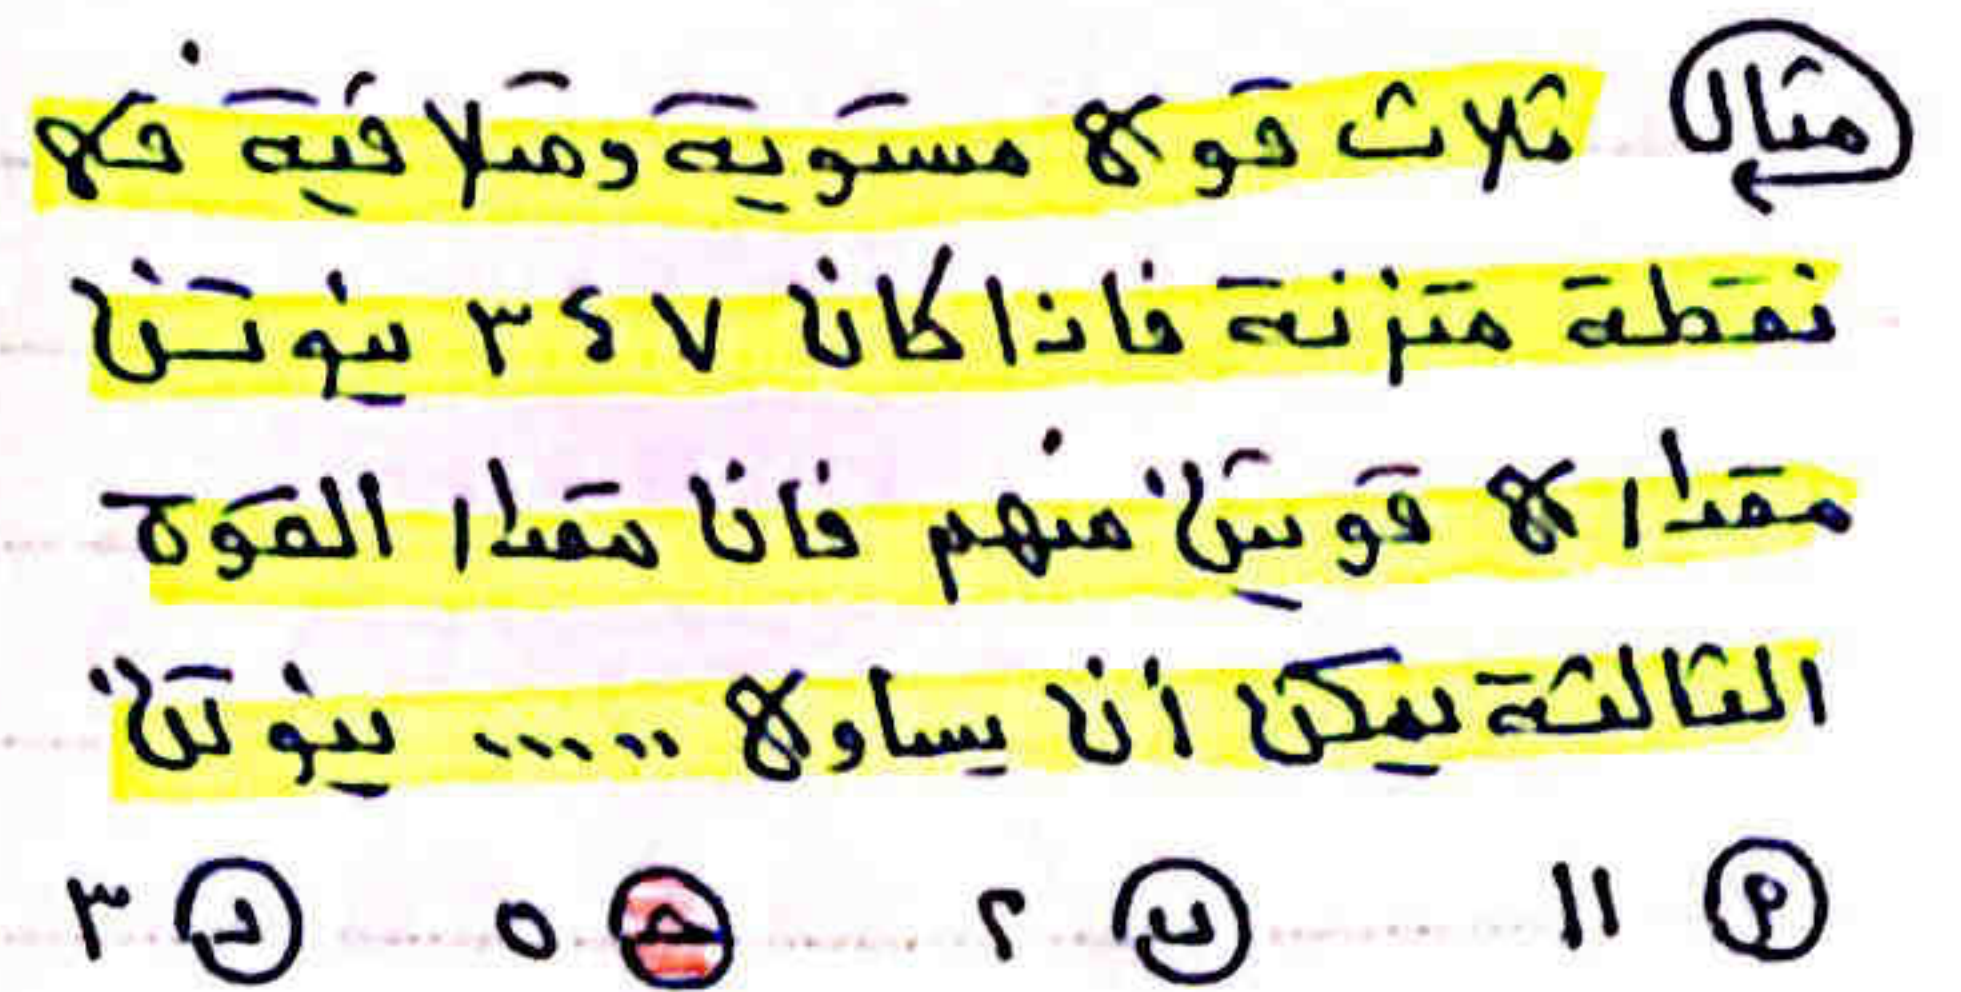 مثال ثلاث قوى مستوية ومتلاقية فى
نقطة متزنة فاذا كان ٧ ٤ ٣ نيوتن
مقدارى قوتين منهم فان مقدار القوة
الثالثة يمكن أن يساوى ..... نيوتن
أ ١١ ب ٢ ج ٥ د ٣